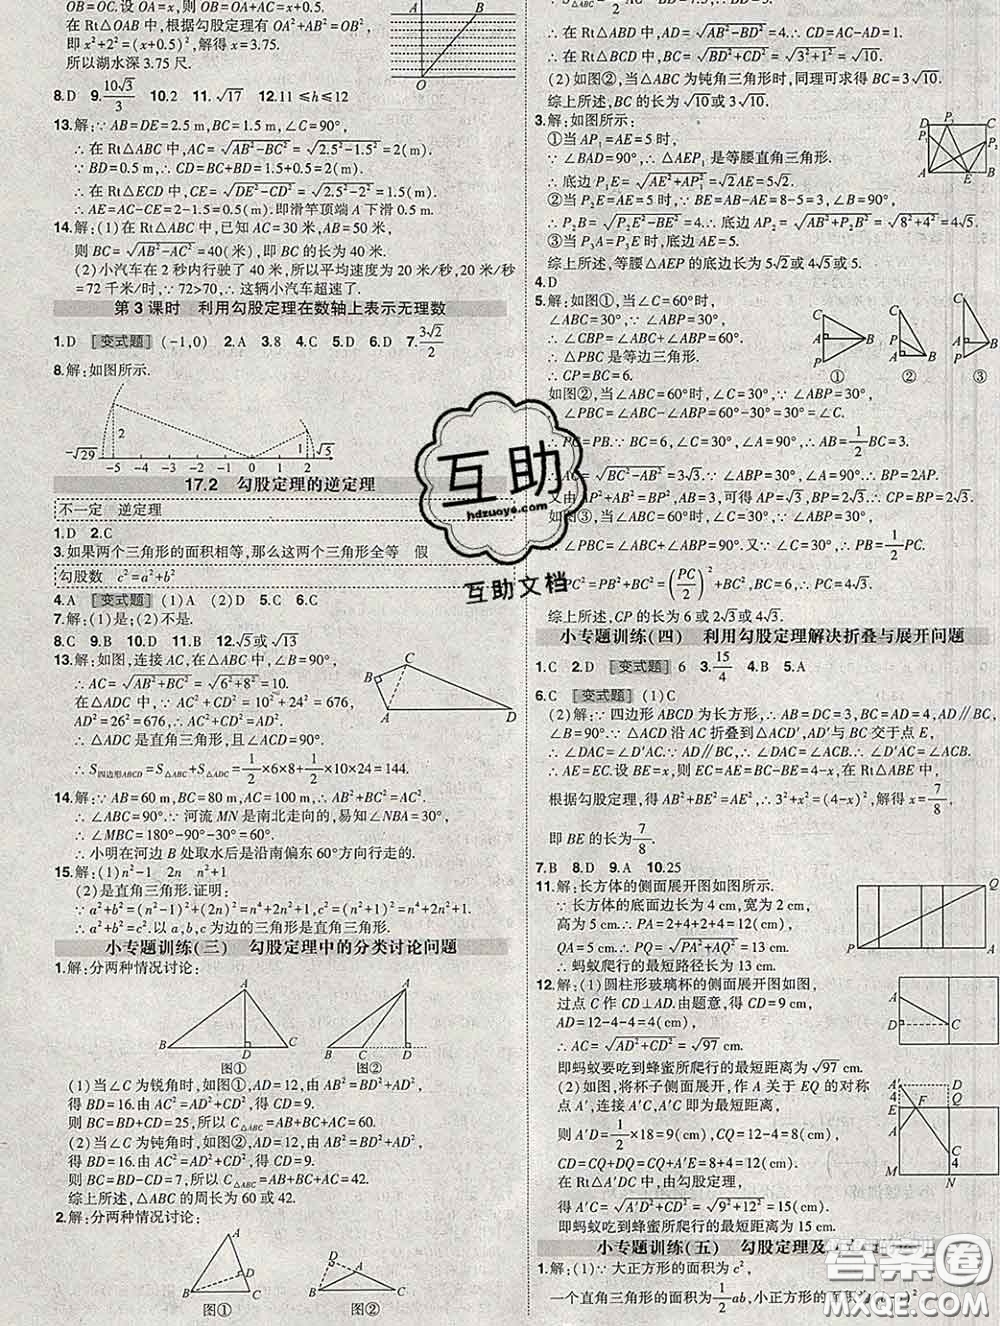 OB=OC. 设 OA=x, 则 OB=OC=OA+0.5=x+0.5.
在 Rt△OAB 中, 根据勾股定理有 OA²+AB²=OB²,
即 x²+2²=(x+0.5)², 解得 x=3.75.
所以湖水深 3.75 尺.
A B
O
8.D 9.10√3/3 10.2 11.√17 12.11≤h≤12
13.解:∵AB=DE=2.5 m, BC=1.5 m, ∠C=90°,
∴在 Rt△ABC 中, AC=√(AB²-BC²)=√(2.5²-1.5²)=2(m).
∵BD=0.5 m, ∴CD=BC+BD=1.5+0.5=2(m).
∴在 Rt△ECD 中, CE=√(DE²-CD²)=√(2.5²-2²)=1.5(m).
∴AE=AC-CE=2-1.5=0.5(m). 即滑竿顶端 A 下滑 0.5 m.
14.解:(1)在 Rt△ABC 中, 已知 AC=30 米, AB=50 米,
则 BC=√(AB²-AC²)=40(米), 即 BC 的长为 40 米.
(2)小汽车在 2 秒内行驶了 40 米, 所以平均速度为 20 米/秒, 20 米/秒
=72 千米/时, ∵72>70, ∴这辆小汽车超速了.
第 3 课时 利用勾股定理在数轴上表示无理数
1.D [变式题] (-1,0) 2.A 3.8 4.C 5.D 6.D 7.3√2/2
8.解:如图所示.
2 1
-√29 -5 -4 -3 -2 -1 0 1 2 √5
17.2 勾股定理的逆定理
不一定 逆定理
1.D 2.C
3.如果两个三角形的面积相等, 那么这两个三角形全等 假
勾股数 c²=a²+b²
4.A [变式题] (1)A (2)D 5.C 6.C
7.解:(1)是; (2)不是.
8.C 9.B 10.B 11.B 12.√5或√13
13.解:如图, 连接 AC, 在△ABC 中,
∴AC=√(AB²+BC²)=√(6²+8²)=10.
在△ADC 中, ∵AC²+CD²=10²+24²=676,
AD²=26²=676, ∴AC²+CD²=AD².
∴△ADC 是直角三角形, 且∠ACD=90°.
∴S四边形ABCD=S△ABC+S△ADC=1/2×6×8+1/2×10×24=144.
A B C D
14.解:∵AB=60 m, BC=80 m, AC=100 m, ∴AB²+BC²=AC².
∴∠ABC=90°. ∵河流 MN 是南北走向的, 易知∠NBA=30°,
∴∠MBC=180°-90°-30°=60°.
∴小明在河边 B 处取水后是沿南偏东 60°方向行走的.
15.解:(1)n²-1 2n n²+1
(2)是直角三角形. 证明:
∵a²+b²=(n²-1)²+(2n)²=n⁴+2n²+1, c²=(n²+1)²=n⁴+2n²+1,
∴a²+b²=c². 以 a,b,c 为边的三角形是直角三角形.
小专题训练(三) 勾股定理中的分类讨论问题
1.解:分两种情况讨论:
A B D C 图①
A B C D 图②
(1)当∠C 为锐角时, 如图①, AD=12, 由 AB²=BD²+AD²,
得 BD=16. 由 AC²=AD²+CD², 得 CD=9.
则 BC=BD+CD=25, 所以 C△ABC=AB+BC+AC=60.
(2)当∠C 为钝角时, 如图②, AD=12, 由 AB²=BD²+AD²,
得 BD=16. 由 AC²=AD²+CD², 得 CD=9.
则 BC=BD-CD=7, 所以 C△ABC=AB+BC+AC=42.
综上所述, △ABC 的周长为 60 或 42.
2.解:分两种情况讨论:
A B C D 图①
D A B C 图②
∴在 Rt△ABD 中, AD=√(AB²-BD²)=4. ∴CD=AC-AD=1.
∴在 Rt△BCD 中, BC=√(BD²+CD²)=√(3²+1²)=√10.
(2)如图②, 当△ABC 为钝角三角形时, 同理可求得 BC=3√10.
综上所述, BC 的长为√10或3√10.
3.解:如图所示:
①当 AP₁=AE=5 时,
∵∠BAD=90°, ∴△AEP₁ 是等腰直角三角形.
∴底边 P₁E=√(AE²+AP₁²)=√2AE=5√2.
②当 P₂E=AE=5 时, ∵BE=AB-AE=8-5=3, ∠B=90°,
∴P₂B=√(P₂E²-BE²)=4. ∴底边 AP₂=√(AB²+P₂B²)=√(8²+4²)=4√5
③当 P₃A=P₃E 时, 底边 AE=5.
综上所述, 等腰△AEP 的底边长为 5√2或4√5或5.
4.D
5.解:如图①, 当∠ABC=60°时,
∠ABC=30°. ∵∠ABP=30°,
∴∠CBP=∠ABC+∠ABP=60°.
∴△PBC 是等边三角形.
∴CP=BC=6.
① ② ③
如图②, 当∠ABC=60°时, ∠C=30°. ∵∠ABP=30°,
∴∠PBC=∠ABC-∠ABP=60°-30°=30°=∠C.
∴PC=PB. ∵BC=6, ∠C=30°, ∠A=90°, ∴AB=1/2BC=3.
∴AC=√(BC²-AB²)=3√3. ∵∠ABP=30°, ∴BP=2AP.
又由 AP²+AB²=BP², 可求得 AP=√3, ∴PC=PB=2√3.
如图③, 当∠ABC=60°时, ∠C=30°. ∵∠ABP=30°,
∴∠PBC=∠ABC+∠ABP=90°. ∴PB=1/2PC.
∴PC²=PB²+BC²=(PC/2)²+6². ∴PC=4√3.
综上所述, CP的长为 6 或 2√3 或 4√3.
小专题训练(四) 利用勾股定理解决折叠与展开问题
1.C 2.D [变式题] 6 3.15/4 4.B 5.A
6.C [变式题] (1)C
(2)解:∵四边形 ABCD 为长方形, ∴AB=DC=3, BC=AD=4, AD∥BC,
∠B=90°. ∵△ACD 沿 AC 折叠到△ACD′, AD′与 BC 交于点 E,
∴∠DAC=∠D′AC. ∵AD∥BC, ∴∠DAC=∠ACB. ∴∠D′AC=∠ACB.
∴AE=EC. 设 BE=x, 则 EC=BC-BE=4-x, AE=4-x. 在 Rt△ABE 中,
根据勾股定理, 得 AB²+BE²=AE², ∴3²+x²=(4-x)², 解得 x=7/8,
即 BE 的长为7/8.
7.B 8.D 9.A 10.25
11.解:长方体的侧面展开图如图所示.
∵长方体的底面边长为 4 cm, 宽为 2 cm,
高为 5 cm, ∴PA=2+4+2+4=12(cm),
QA=5 cm. ∴PQ=√(PA²+AQ²)=13 cm.
∴蚂蚁爬行的最短路径长为 13 cm.
P A Q
12.解:(1)圆柱形玻璃杯的侧面展开图如图,
过点 C 作 CD⊥AD. 由题意, 得 CD=9 cm,
AD=12-4-4=4(cm),
∴AC=√(AD²+CD²)=√97 cm.
即蚂蚁要吃到蜂蜜所爬行的最短距离为√97 cm.
A D C
(2)如图, 将杯子侧面展开, 作 A 关于 EQ 的对称
点 A′, 连接 A′C, A′C 即为最短距离,
则 A′D=1/2×18=9(cm), CQ=12-4=8(cm),
CD=CQ+DQ=CQ+A′E=8+4=12(cm).
在 Rt△A′DC 中, 由勾股定理,
得 A′C=√(A′D²+CD²)=√(9²+12²)=15(cm).
即蚂蚁吃到蜂蜜所爬行的最短距离为 15 cm.
A′ D 4 E F Q A C 4 M N
小专题训练(五) 勾股定理及
1.解:(1)∵大正方形的面积为 c²,
一个直角三角形的面积为1/2ab, 小正方形的面积为
互助
hdzuoye.com
互助文档
答案圈
MXQE.COM